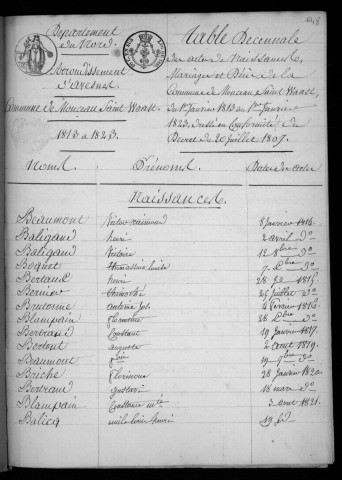 Département
du Nord
Arrondissement
d'Avesnes
Commune de Monceau Saint Waast
1813 a 1823.
Table Decennale
des actes de Naissances,
Mariages et Décès de la
Commune de Monceau Saint Waast,
du 1er Janvier 1813 au 1er Janvier
1823. dressée en Conformité du
Décret du 20 Juillet 1807.
Noms Prénoms Dates des actes
Naissances
Beaumont Victor 8 Janvier 1814.
Baligand henri 2 avril do
Baligand Victoire 12 8bre do
Boquet 7 do
Bertaux henri 28 1815.
Bernier thimothé 25 Juillet do
Brutonne antoine Jos. 2 Février 1816.
Blampain florentine 28 do
Bertrand Constant 19 Janvier 1817.
Bertout auguste 2 aout 1819.
Beaumont 19 9bre do
Briche florimone 28 Janvier 1820
Bertrand gustave 18 mars do
Blampain Constance 3 1821.
Balicq emile louis henri 19